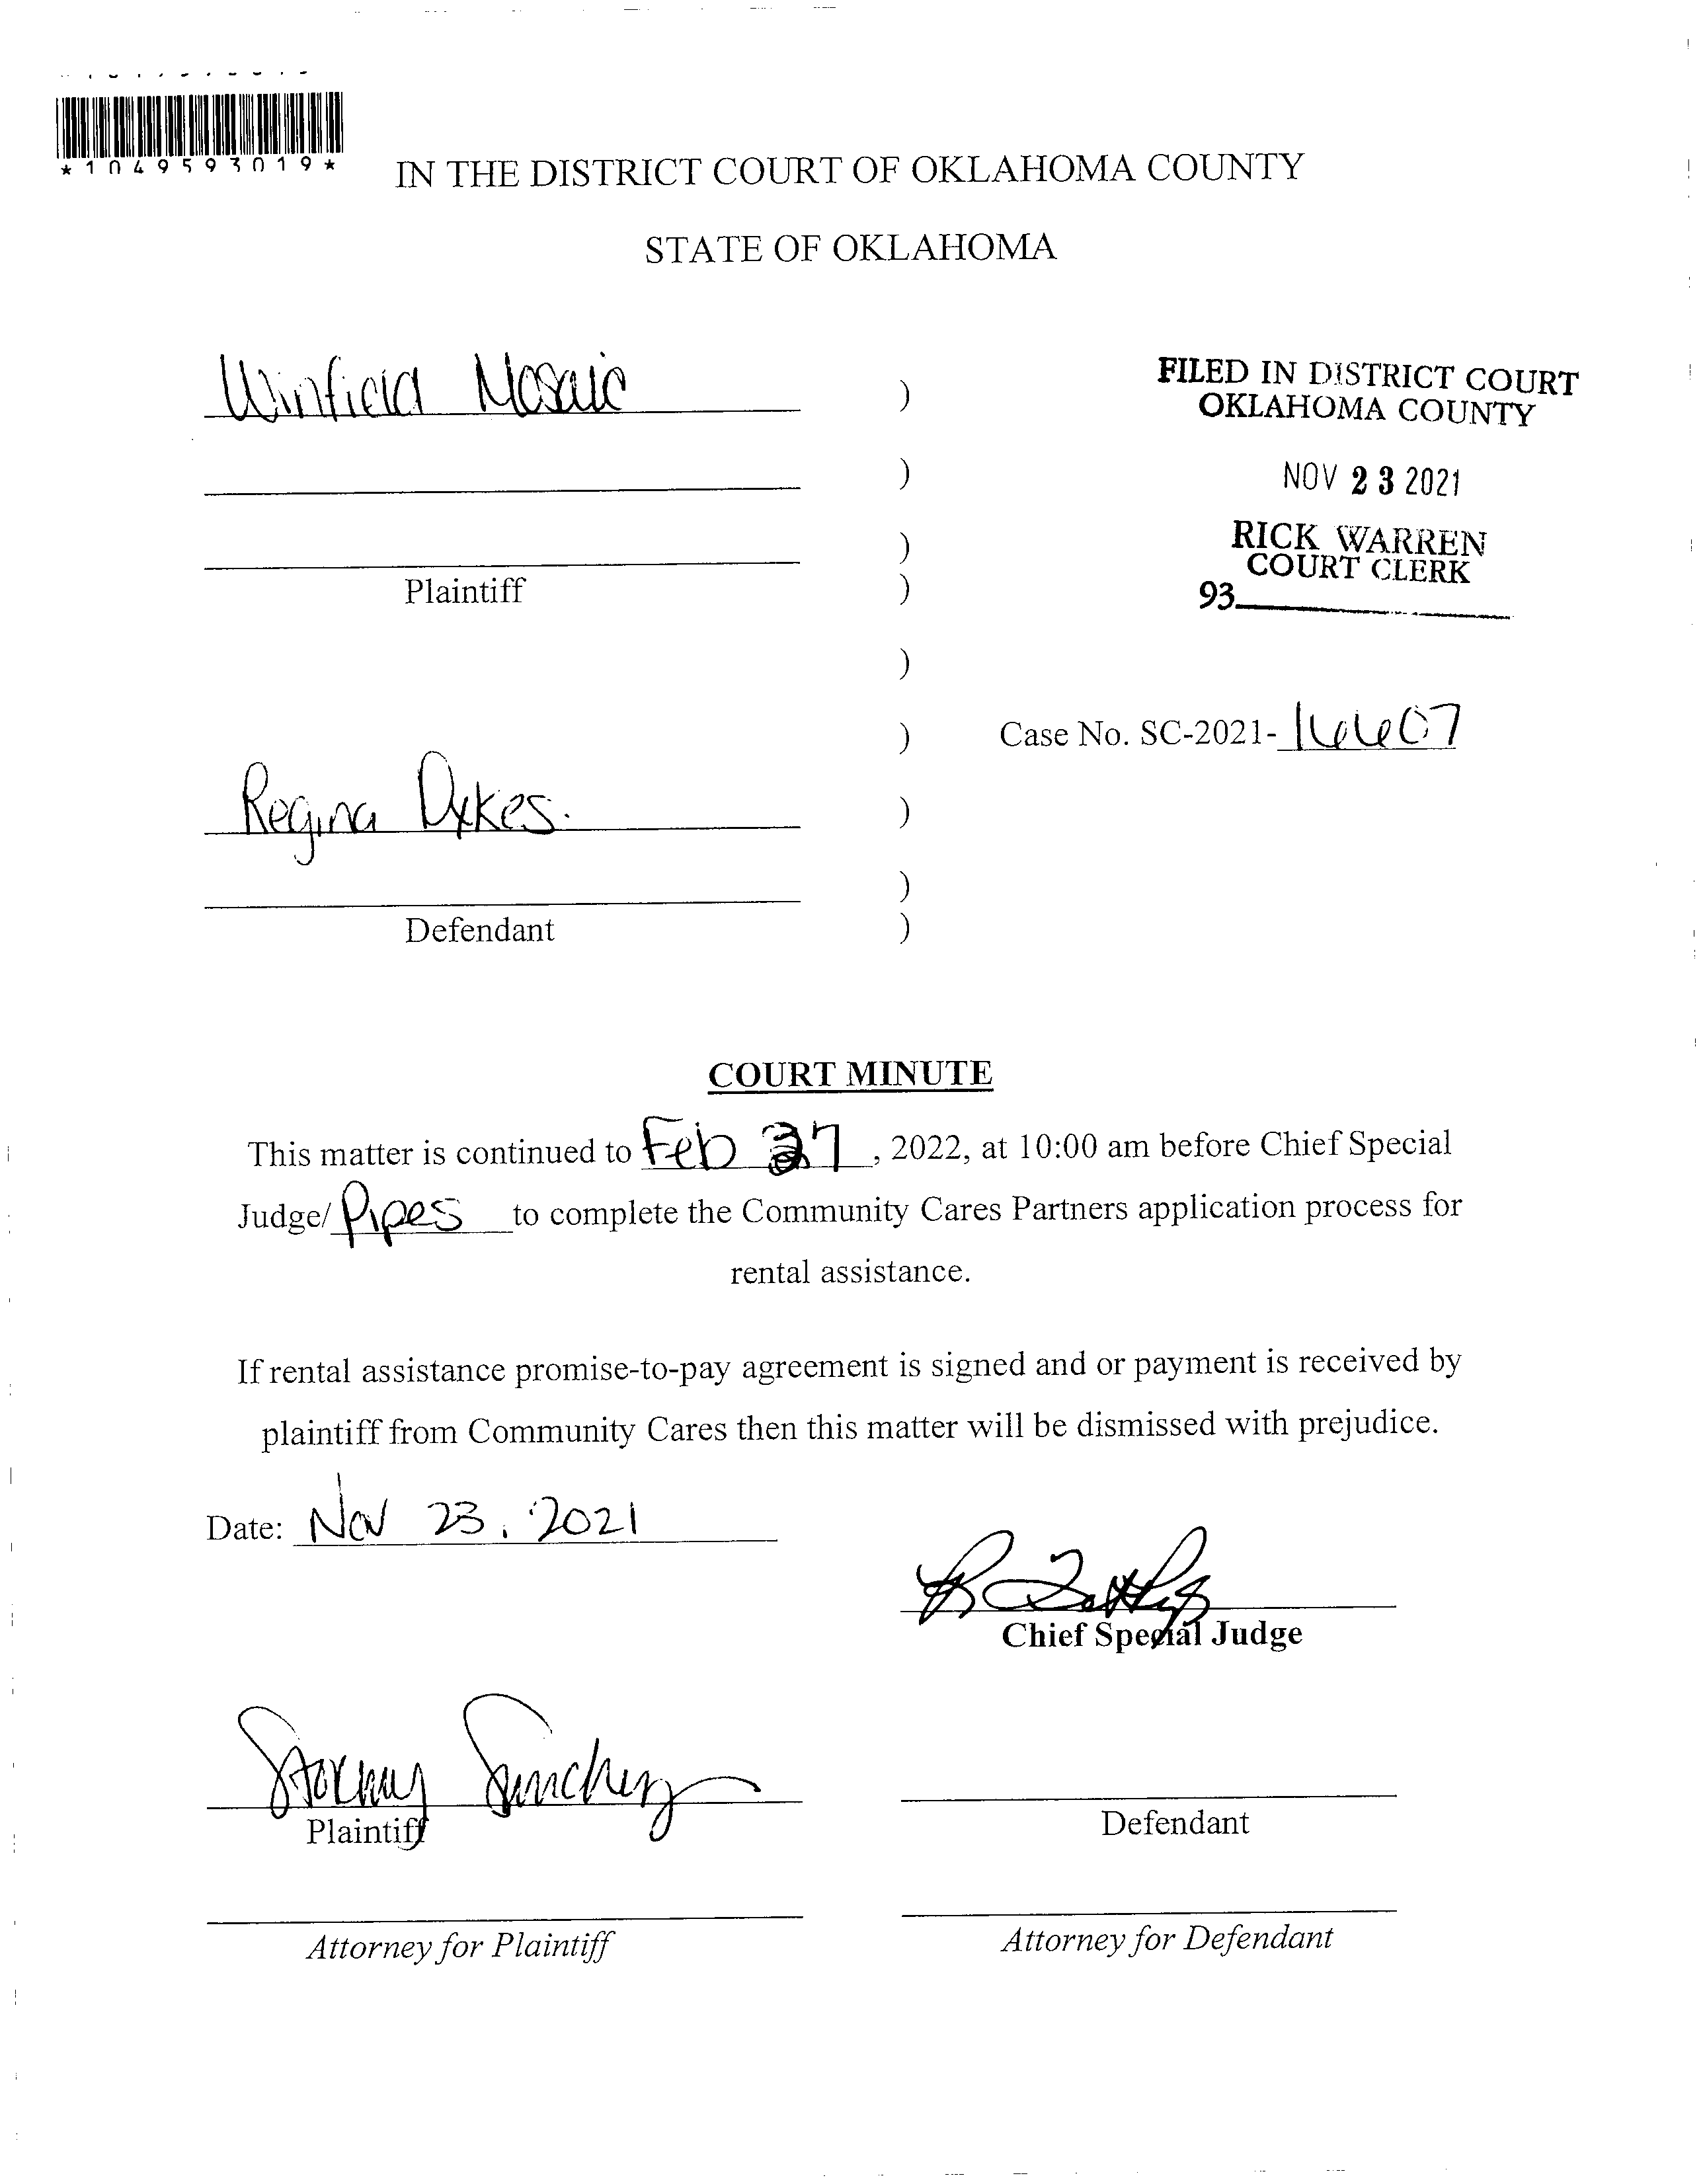 *1049593019*
IN THE DISTRICT COURT OF OKLAHOMA COUNTY
STATE OF OKLAHOMA
Winfield Mosaic
)
FILED IN DISTRICT COURT
OKLAHOMA COUNTY
)
NOV 23 2021
)
RICK WARREN
COURT CLERK
Plaintiff
)
93
)
)
Case No. SC-2021- 16607
Regina Dykes.
)
)
Defendant
)
COURT MINUTE
This matter is continued to Feb 7, 2022, at 10:00 am before Chief Special
Judge/ Pipes to complete the Community Cares Partners application process for
rental assistance.
If rental assistance promise-to-pay agreement is signed and or payment is received by
plaintiff from Community Cares then this matter will be dismissed with prejudice.
Date: Nov 23, 2021
Chief Special Judge
Stormy Sanchez
Plaintiff
Defendant
Attorney for Plaintiff
Attorney for Defendant